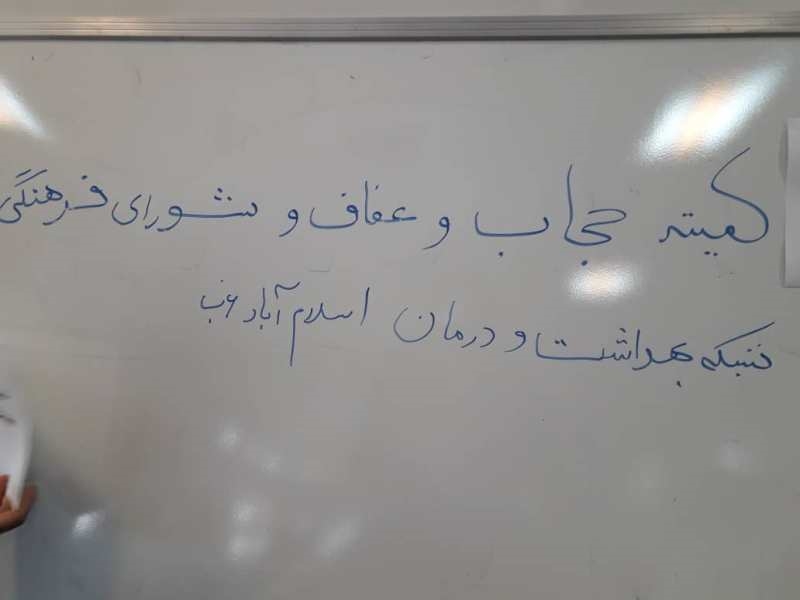 کمیته حجاب و عفاف و شورای فرهنگی
شبکه بهداشت و درمان اسلام آباد غرب